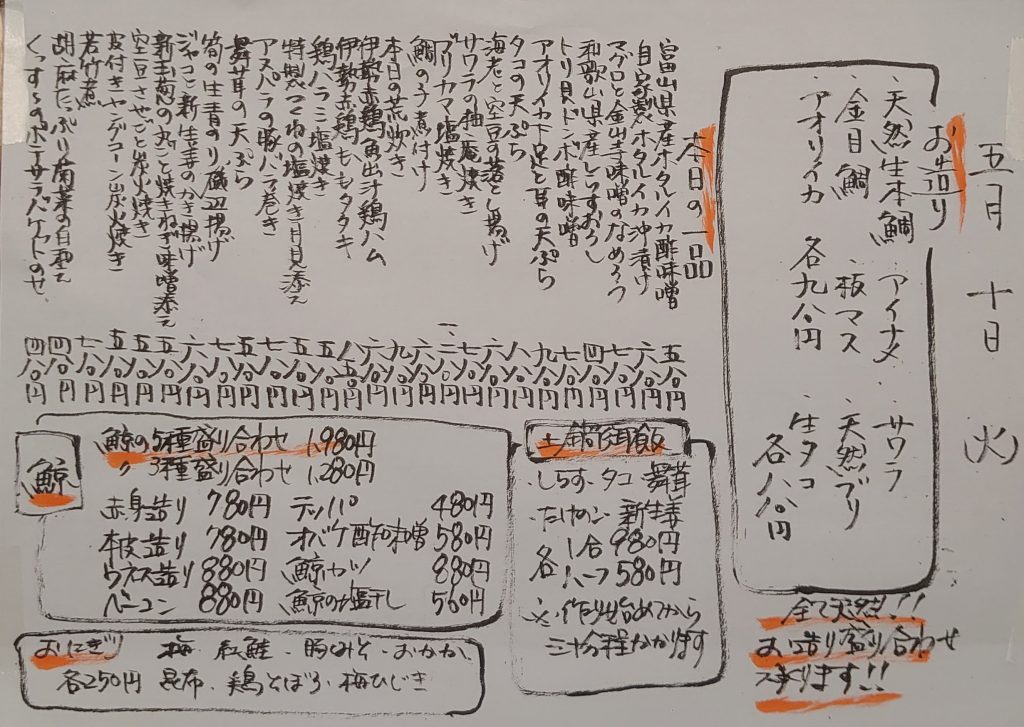 五月十日(火)
お造り
・天然生本鯛・アイナメ・サワラ
・金目鯛・板マス・天然ブリ
・アオリイカ 各九八〇円
・生タコ 各八八〇円
全て天然!!
お造り盛り合わせ
承ります!!
本日の一品
富山県産ホタルイカ酢味噌 五八〇円
自家製ホタルイカ沖漬け 六八〇円
マグロと金山寺味噌のなめろう 七八〇円
和歌山県産しらすおろし 四八〇円
トリ貝ドンポ酢味噌 七八〇円
アオリイカ下足と耳の天ぷら 九八〇円
タコの天ぷら 八八〇円
海老と空豆の落とし揚げ 六八〇円
サワラの柚庵焼き 七八〇円
ブリカマ塩焼き
鯛の子煮付け
本日の荒炊き
伊勢赤鶏魚出汁鶏ハム
伊勢赤鶏ももタタキ
鶏ハラミ塩焼き
特製つくねの塩焼き月見添え
アスパラの豚バラ巻き
舞茸の天ぷら
筍の生青のり磯辺揚げ
ジャコと新生姜のかき揚げ
新玉葱の丸ごと焼きねぎ味噌添え
空豆さやごと炭火焼き
皮付きヤングコーン炭火焼き
若竹煮 七八〇円
胡麻たっぷり菊菜の白和え 四八〇円
くんすものポテサラバケットのせ 四八〇円
鯨
鯨の5種盛り合わせ 1,980円
〃 3種盛り合わせ 1,280円
赤身造り 780円 テッパ 480円
本皮造り 780円 オバケ酢味噌 580円
ウネス造り 880円 鯨カツ 880円
ベーコン 880円 鯨の塩干し 560円
土鍋御飯
・しらす・タコ・舞茸
・たけのこ・新生姜
各 1合 980円
ハーフ 580円
※作り始めてから
三十分程かかります
おにぎり 梅・紅鮭・豚みそ・おかか・
各250円 昆布・鶏そぼろ・梅ひじき